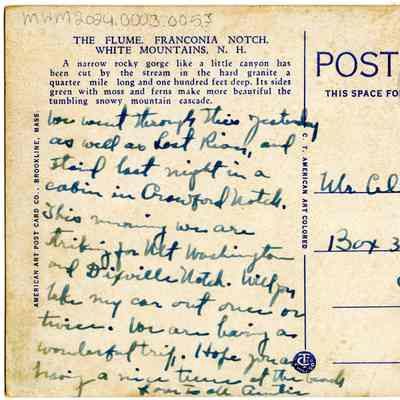 MWM2024.0003.0053
THE FLUME, FRANCONIA NOTCH,
WHITE MOUNTAINS, N. H.
A narrow rocky gorge like a little canyon has
been cut by the stream in the hard granite a
quarter mile long and one hundred feet deep. Its sides
green with moss and ferns make more beautiful the
tumbling snowy mountain cascade.
We went through this yesterday
as well as Lost River, and
staid last night in a
cabin in Crawford Notch.
This morning we are
striking for Mt Washington
and Dixville Notch. Will you
take my car out once or
twice. We are having a
wonderful trip. Hope you are
having a nice time at the beach
Love to all Auntie
AMERICAN ART POST CARD CO., BROOKLINE, MASS.
C. T. AMERICAN ART COLORED
POST
THIS SPACE FO
Mr
Box 3